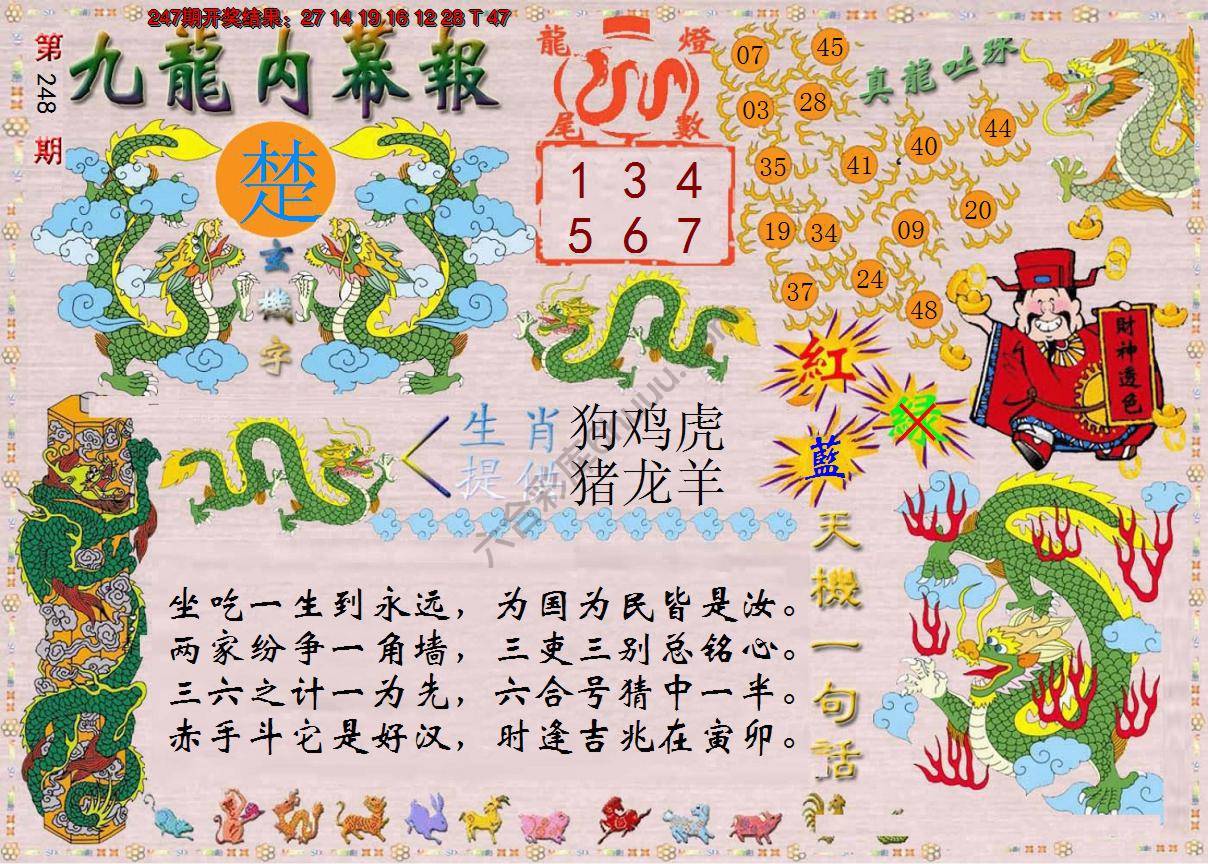 247期开奖结果：27 14 19 16 12 28 T 47
第248期
九龍内幕報
楚
玄機字
龍燈尾數
1 3 4
5 6 7
真龍吐珠
07 45
03 28
35 41 40 44
19 34 09 20
37 24 48
財神透色
紅
绿
藍
生肖提供
狗鸡虎
猪龙羊
天機一句話
坐吃一生到永远，为国为民皆是汝。
两家纷争一角墙，三吏三别总铭心。
三六之计一为先，六合号猜中一半。
赤手斗它是好汉，时逢吉兆在寅卯。